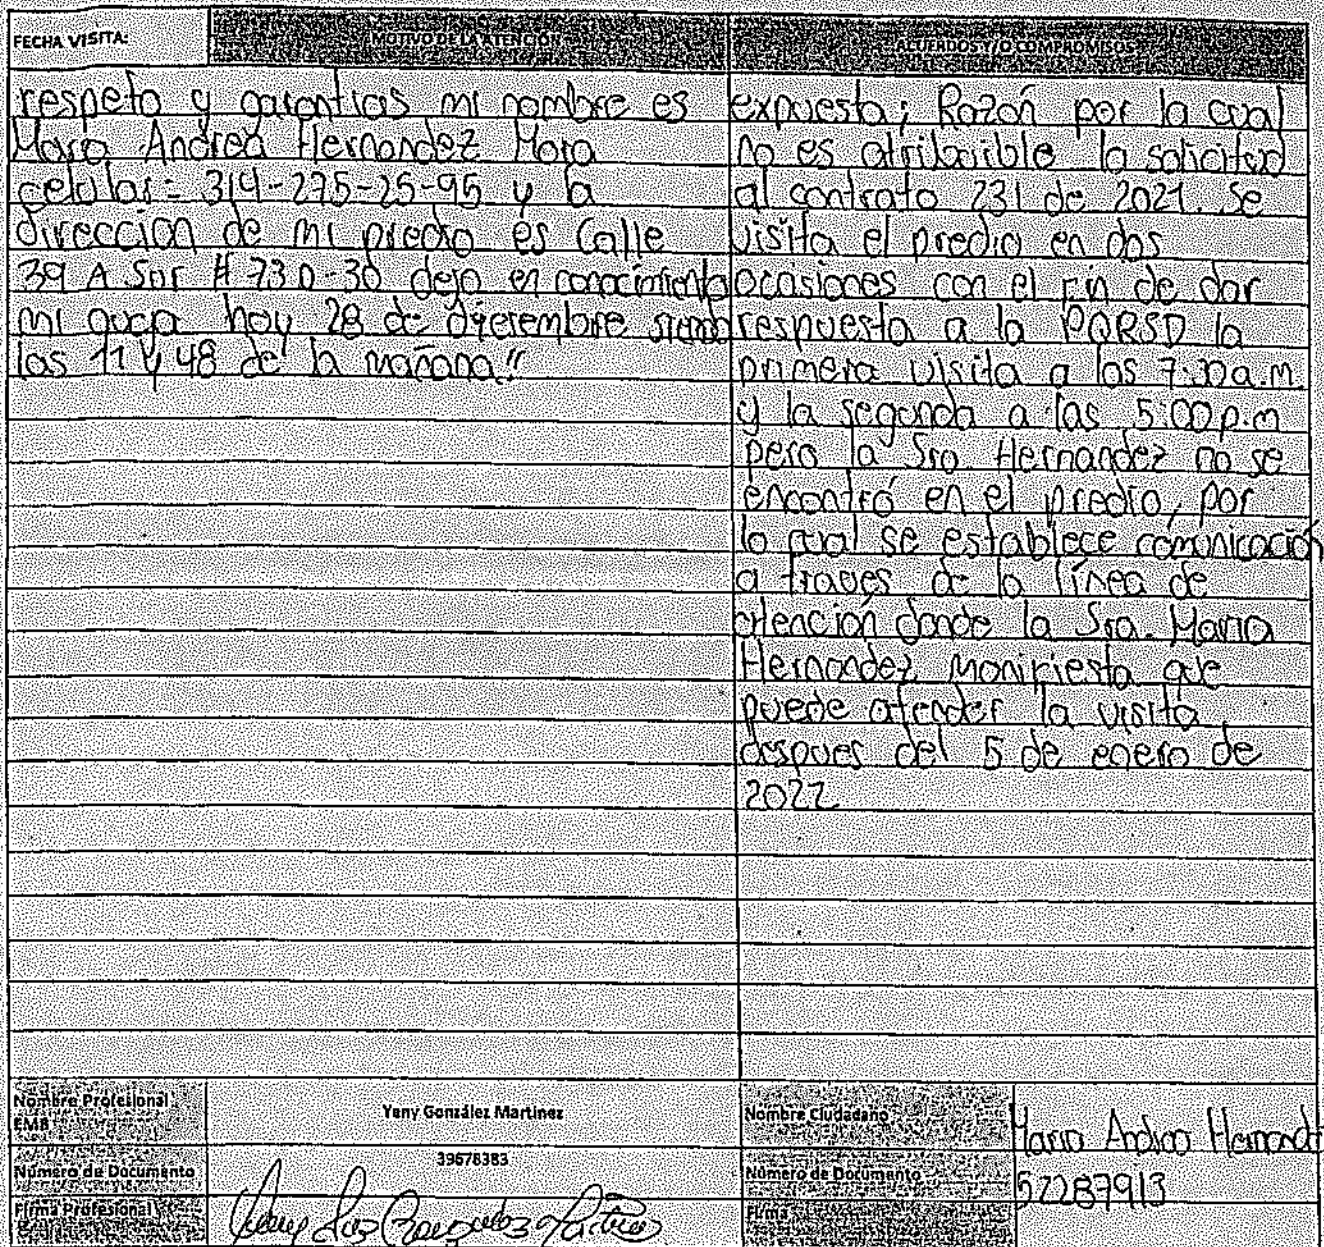 FECHA VISITA:
MOTIVO DE LA ATENCIÓN
ACUERDOS Y/O COMPROMISOS
respeto y garantias mi nombre es
Maria Andrea Hernandez Mora
celular = 314-275-25-95 y la
dirección de mi predio es Calle
39 A Sur # 73 D-30 dejo en conocimiento
mi queja hoy 28 de diciembre siendo
las 11 y 48 de la mañana"
expuesta; Razón por la cual
no es atribuible la solicitud
al contrato 231 de 2021. Se
visita el predio en dos
ocasiones con el fin de dar
respuesta a la PQRSD la
primera visita a las 7:30 a.m.
y la segunda a las 5:00 p.m
pero la Sra. Hernandez no se
encontró en el predio, por
lo cual se establece comunicación
a traves de la línea de
atención donde la Sra. Maria
Hernandez manifiesta que
puede atender la visita
despues del 5 de enero de
2022
Nombre Profesional
EMB
Yeny González Martínez
Nombre Ciudadano
Maria Andrea Hernandez
Número de Documento
39678383
Número de Documento
52287913
Firma Profesional
Firma